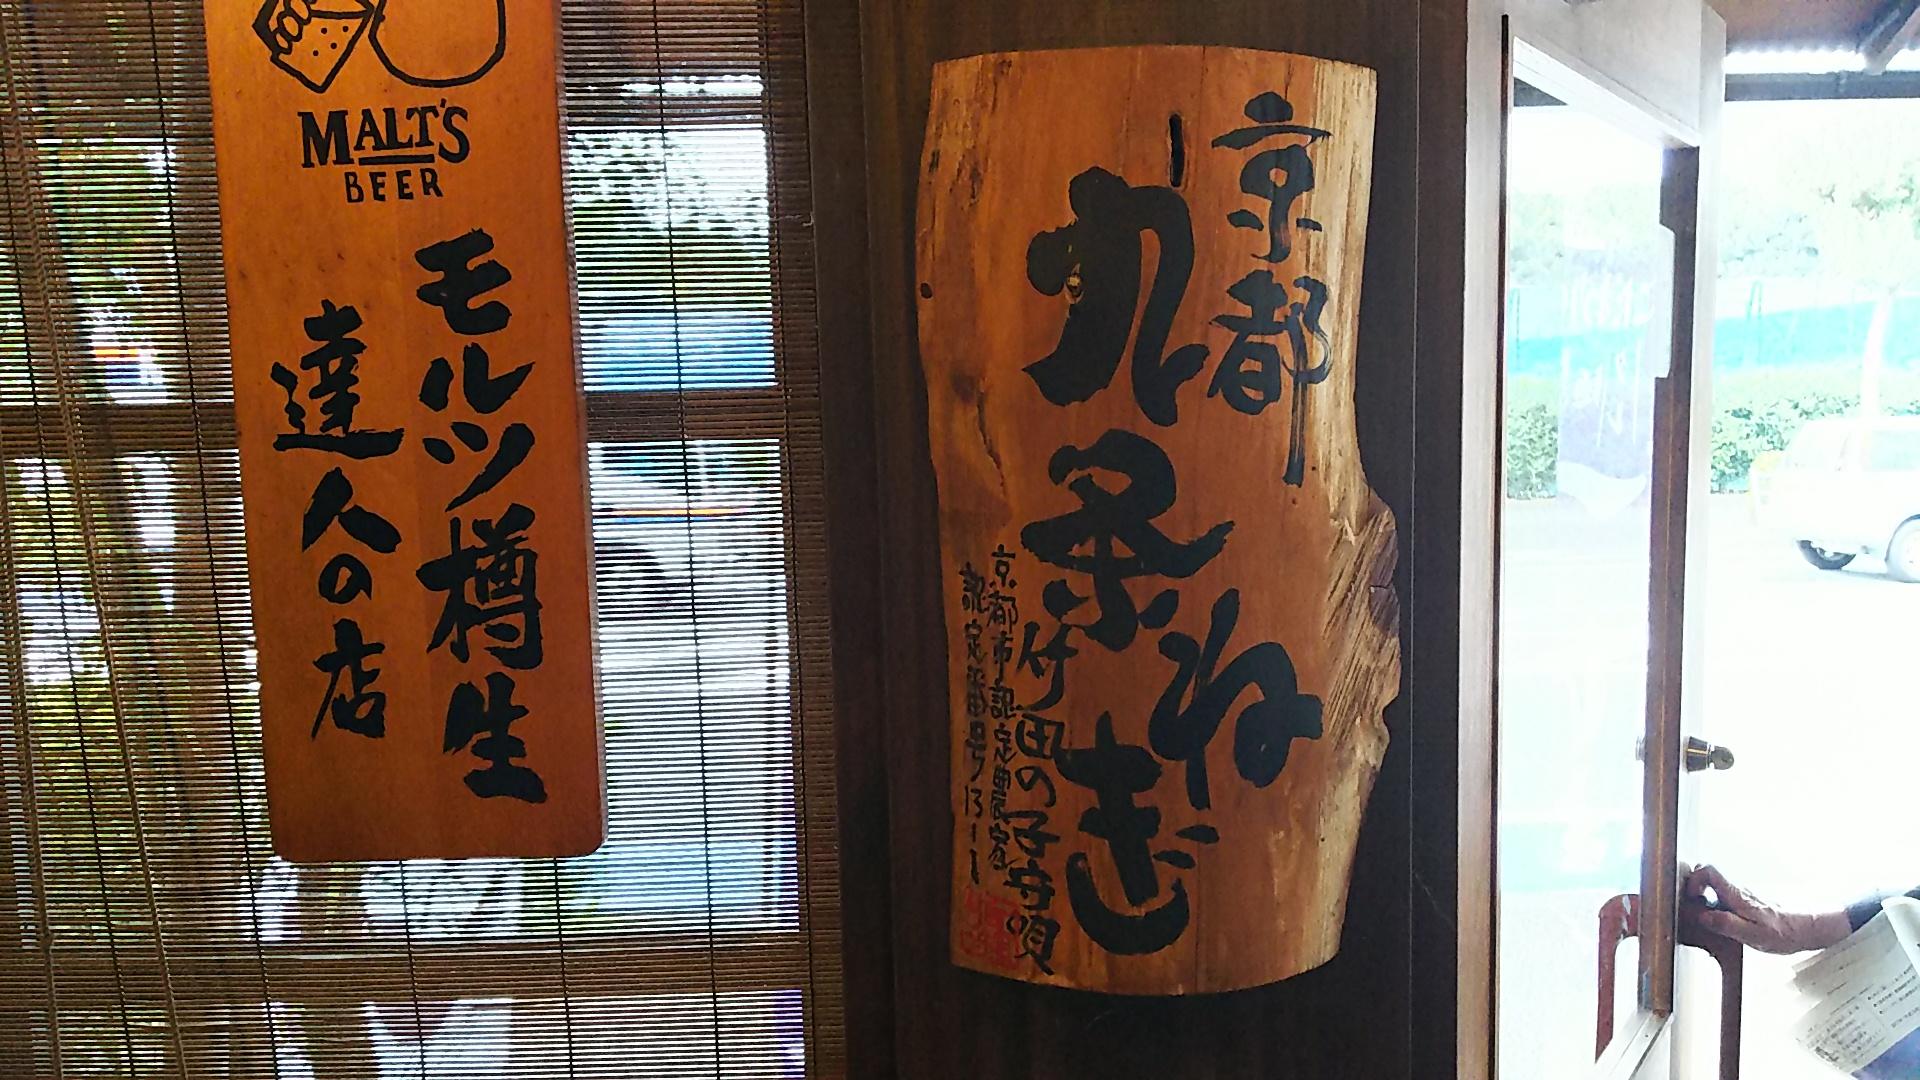 MALT'S
BEER
モルツ樽生
達人の店
京都
九条ねぎ
竹田の子守唄
京都市認定農家
認定番号213-1